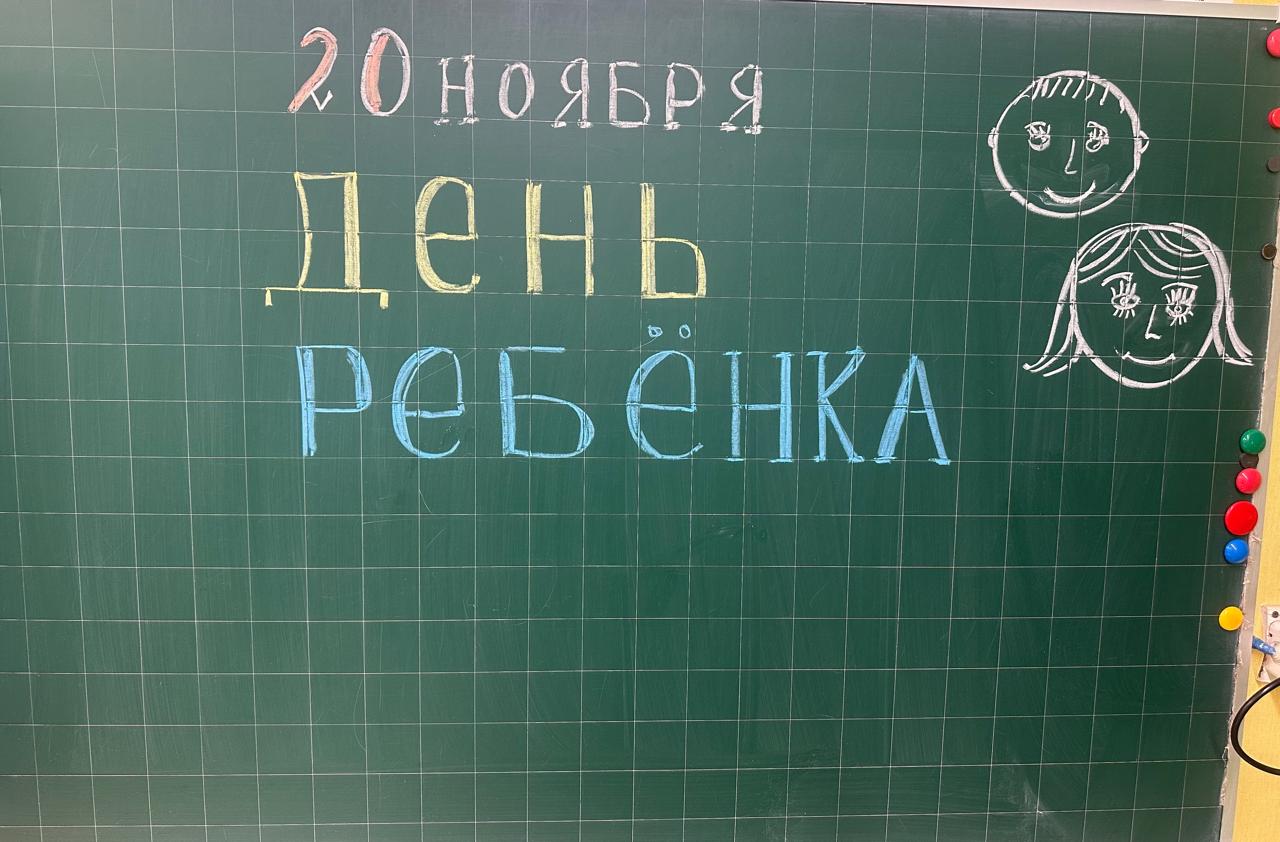 20 НОЯБРЯ
ДеНЬ
РеБёНКА